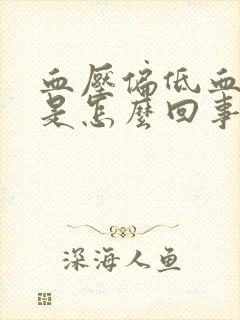 血壓偏低血
是怎麼回事
深海人鱼